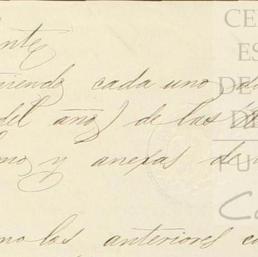 nte
iendo cada uno d
del año) de las
mo y anexas de
no los anteriores co
CE
ES
DE
DE
FU
Co